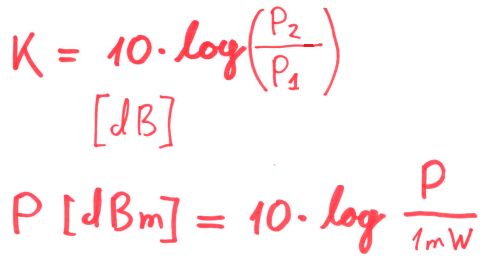 K = 10·log(P₂/P₁)
[dB]
P [dBm] = 10·log P/1mW